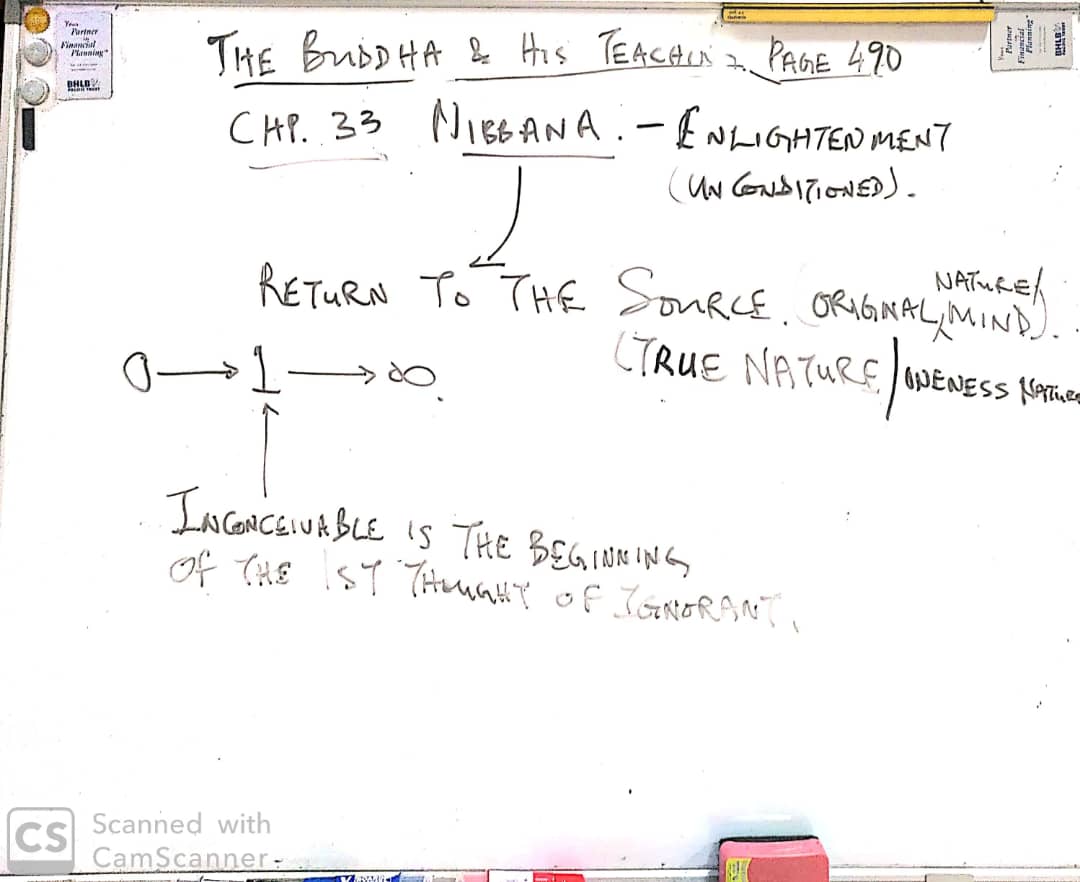 Your
Partner
in
Financial
Planning
BHLB
THE BUDDHA & HIS TEACHING PAGE 490
CHP. 33 NIBBANA. - ENLIGHTENMENT
(UNCONDITIONED).
RETURN TO THE SOURCE. ORIGINAL NATURE/MIND).
(TRUE NATURE/ONENESS NATURE
0 → 1 → ∞.
INCONCEIVABLE IS THE BEGINNING
OF THE 1ST THOUGHT OF IGNORANT.
Your
Partner
in
Financial
Planning
BHLB
CS Scanned with
CamScanner